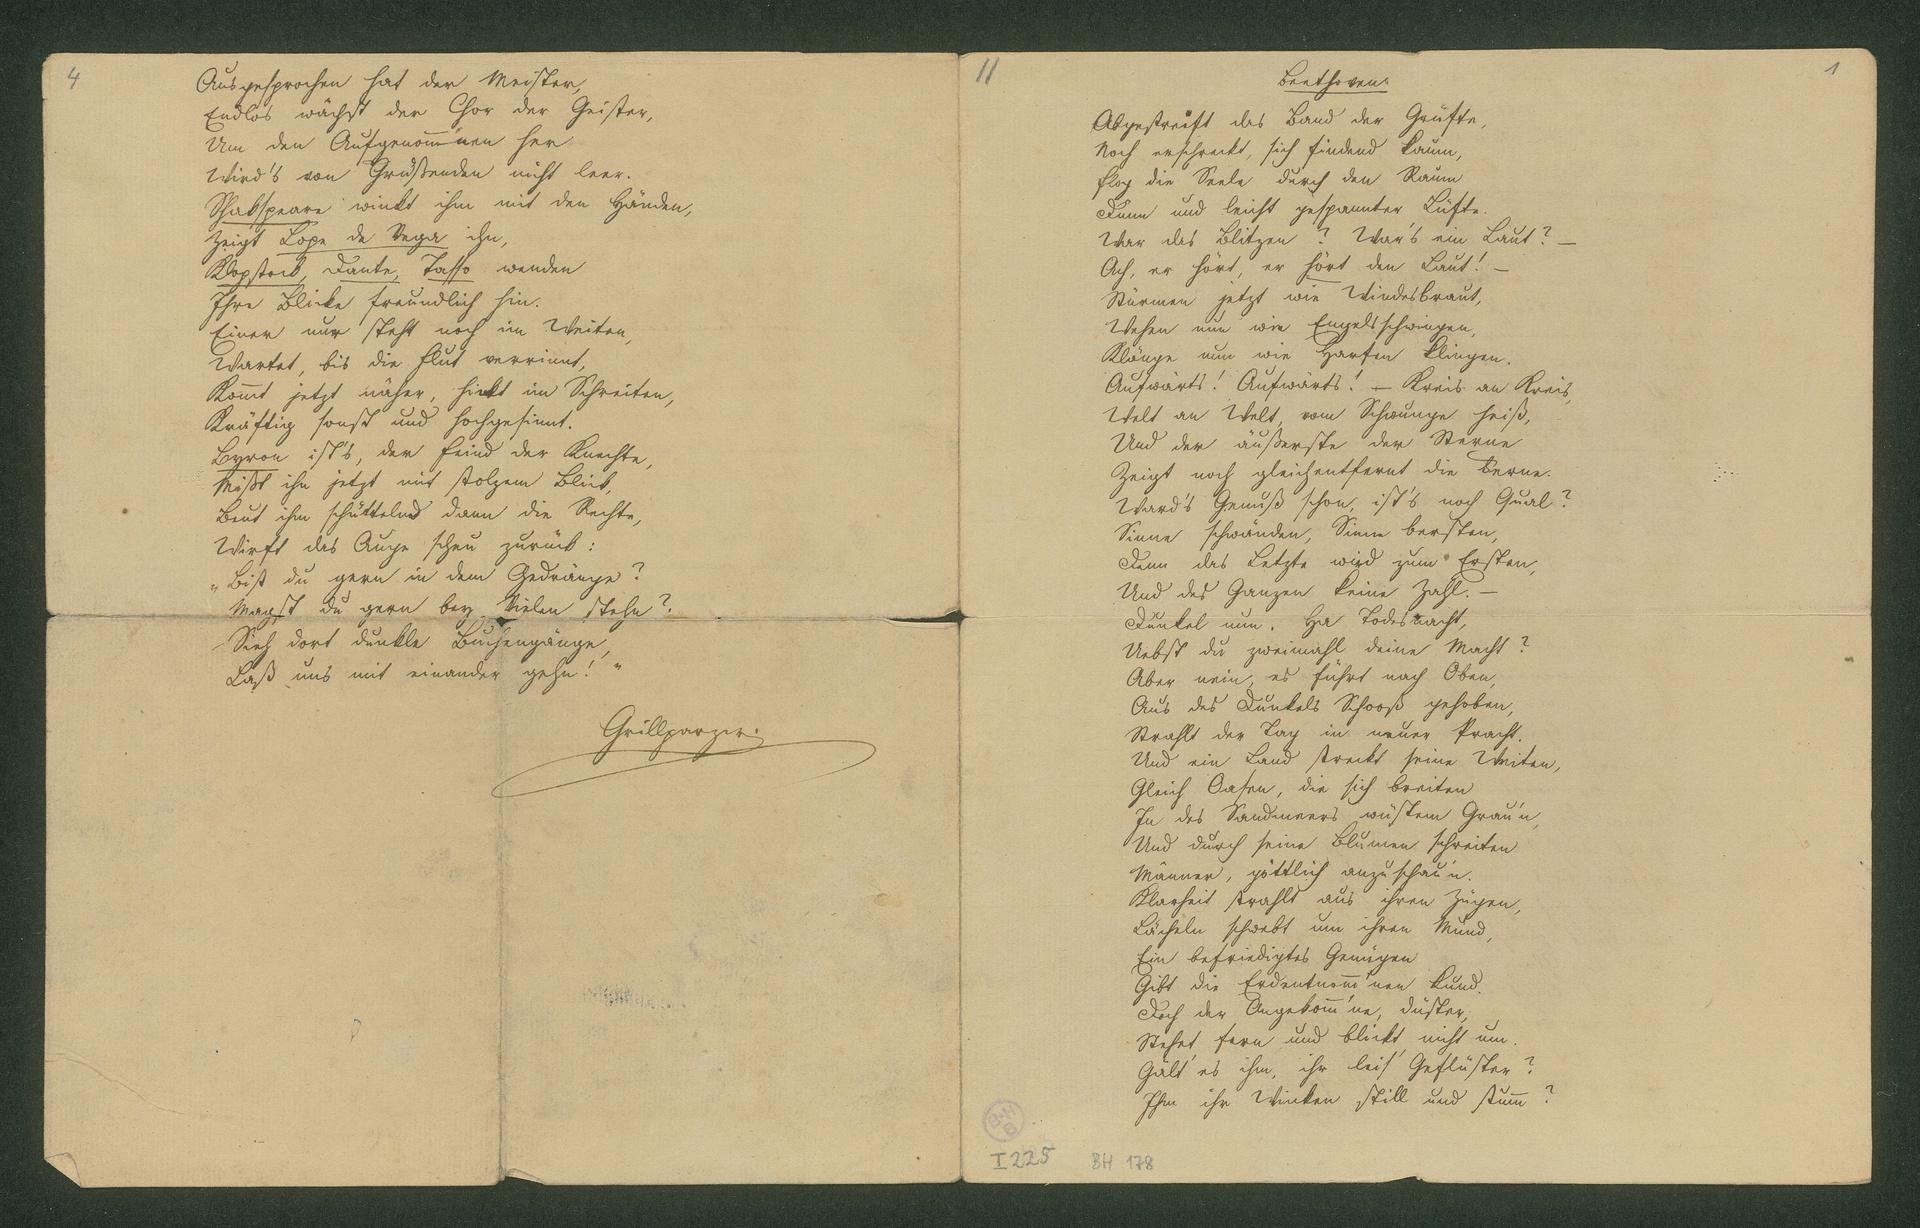 4
Ausgesprochen hat der Meister,
Endlos wächst der Chor der Geister,
Um den Aufgenom̅'nen her
Wird's von Grüßenden nicht leer.
Shakspeare winkt ihm mit den Händen,
Zeigt Lope de Vega ihn,
Klopstock, Dante, Tasso wenden
Ihre Blicke freundlich hin.
Einer nur steht noch im Weiten,
Wartet, bis die Flut verrinnt,
Kom̅t jetzt näher, hinkt im Schreiten,
Kräftig sonst und hochgesinnt.
Byron ist's, der Feind der Knechte,
Mißt ihn jetzt mit stolzem Blick,
Beut ihm schüttelnd dann die Rechte,
Wirft das Auge scheu zurück:
„Bist du gern in dem Gedränge?
Magst du gern bey Vielen stehn?
Sieh dort dunkle Buchengänge,
Laß uns mit einander gehn!"
Grillparzer.
11
1
Beethoven.
Abgestreift das Band der Grüfte,
Noch erschreckt, sich findend kaum,
Flog die Seele durch den Raum
Dünn und leicht gespannter Lüfte.
War das Blitzen? War's ein Laut? —
Ach, er hört, er hört den Laut! —
Stürmen jetzt wie Windesbraut,
Wehen nun wie Engelsschwingen,
Klänge nun wie Harfen klingen.
Aufwärts! Aufwärts! — Kreis an Kreis,
Welt an Welt, vom Schwunge heiß,
Und der äußerste der Sterne
Zeigt noch gleichentfernt die Ferne.
Ward's Genuß schon, ist's noch Qual?
Sinne schwänden, Sinne bersten,
Denn das Letzte wird zum Ersten,
Und des Ganzen keine Zahl. —
Dunkel nun. Ha Todesnacht,
Uebst du zweimahl deine Macht?
Aber nein, es führt nach Oben,
Aus des Dunkels Schooß gehoben,
Strahlt der Tag in neuer Pracht.
Und ein Land streckt seine Weiten,
Gleich Oasen, die sich breiten
In des Sandmeers wüstem Grau'n,
Und durch seine Blumen schreiten
Männer, göttlich anzuschau'n.
Klarheit strahlt aus ihren Zügen,
Lächeln schwebt um ihren Mund,
Ein befriedigtes Genügen
Gibt die Erdentnom̅'nen kund.
Doch der Angekom̅'ne, düster,
Stehet fern und blickt nicht um.
Gält' es ihm, ihr leis' Geflüster?
Ihm ihr Winken still und stum̅?
B-H
B
I 225
BH 178